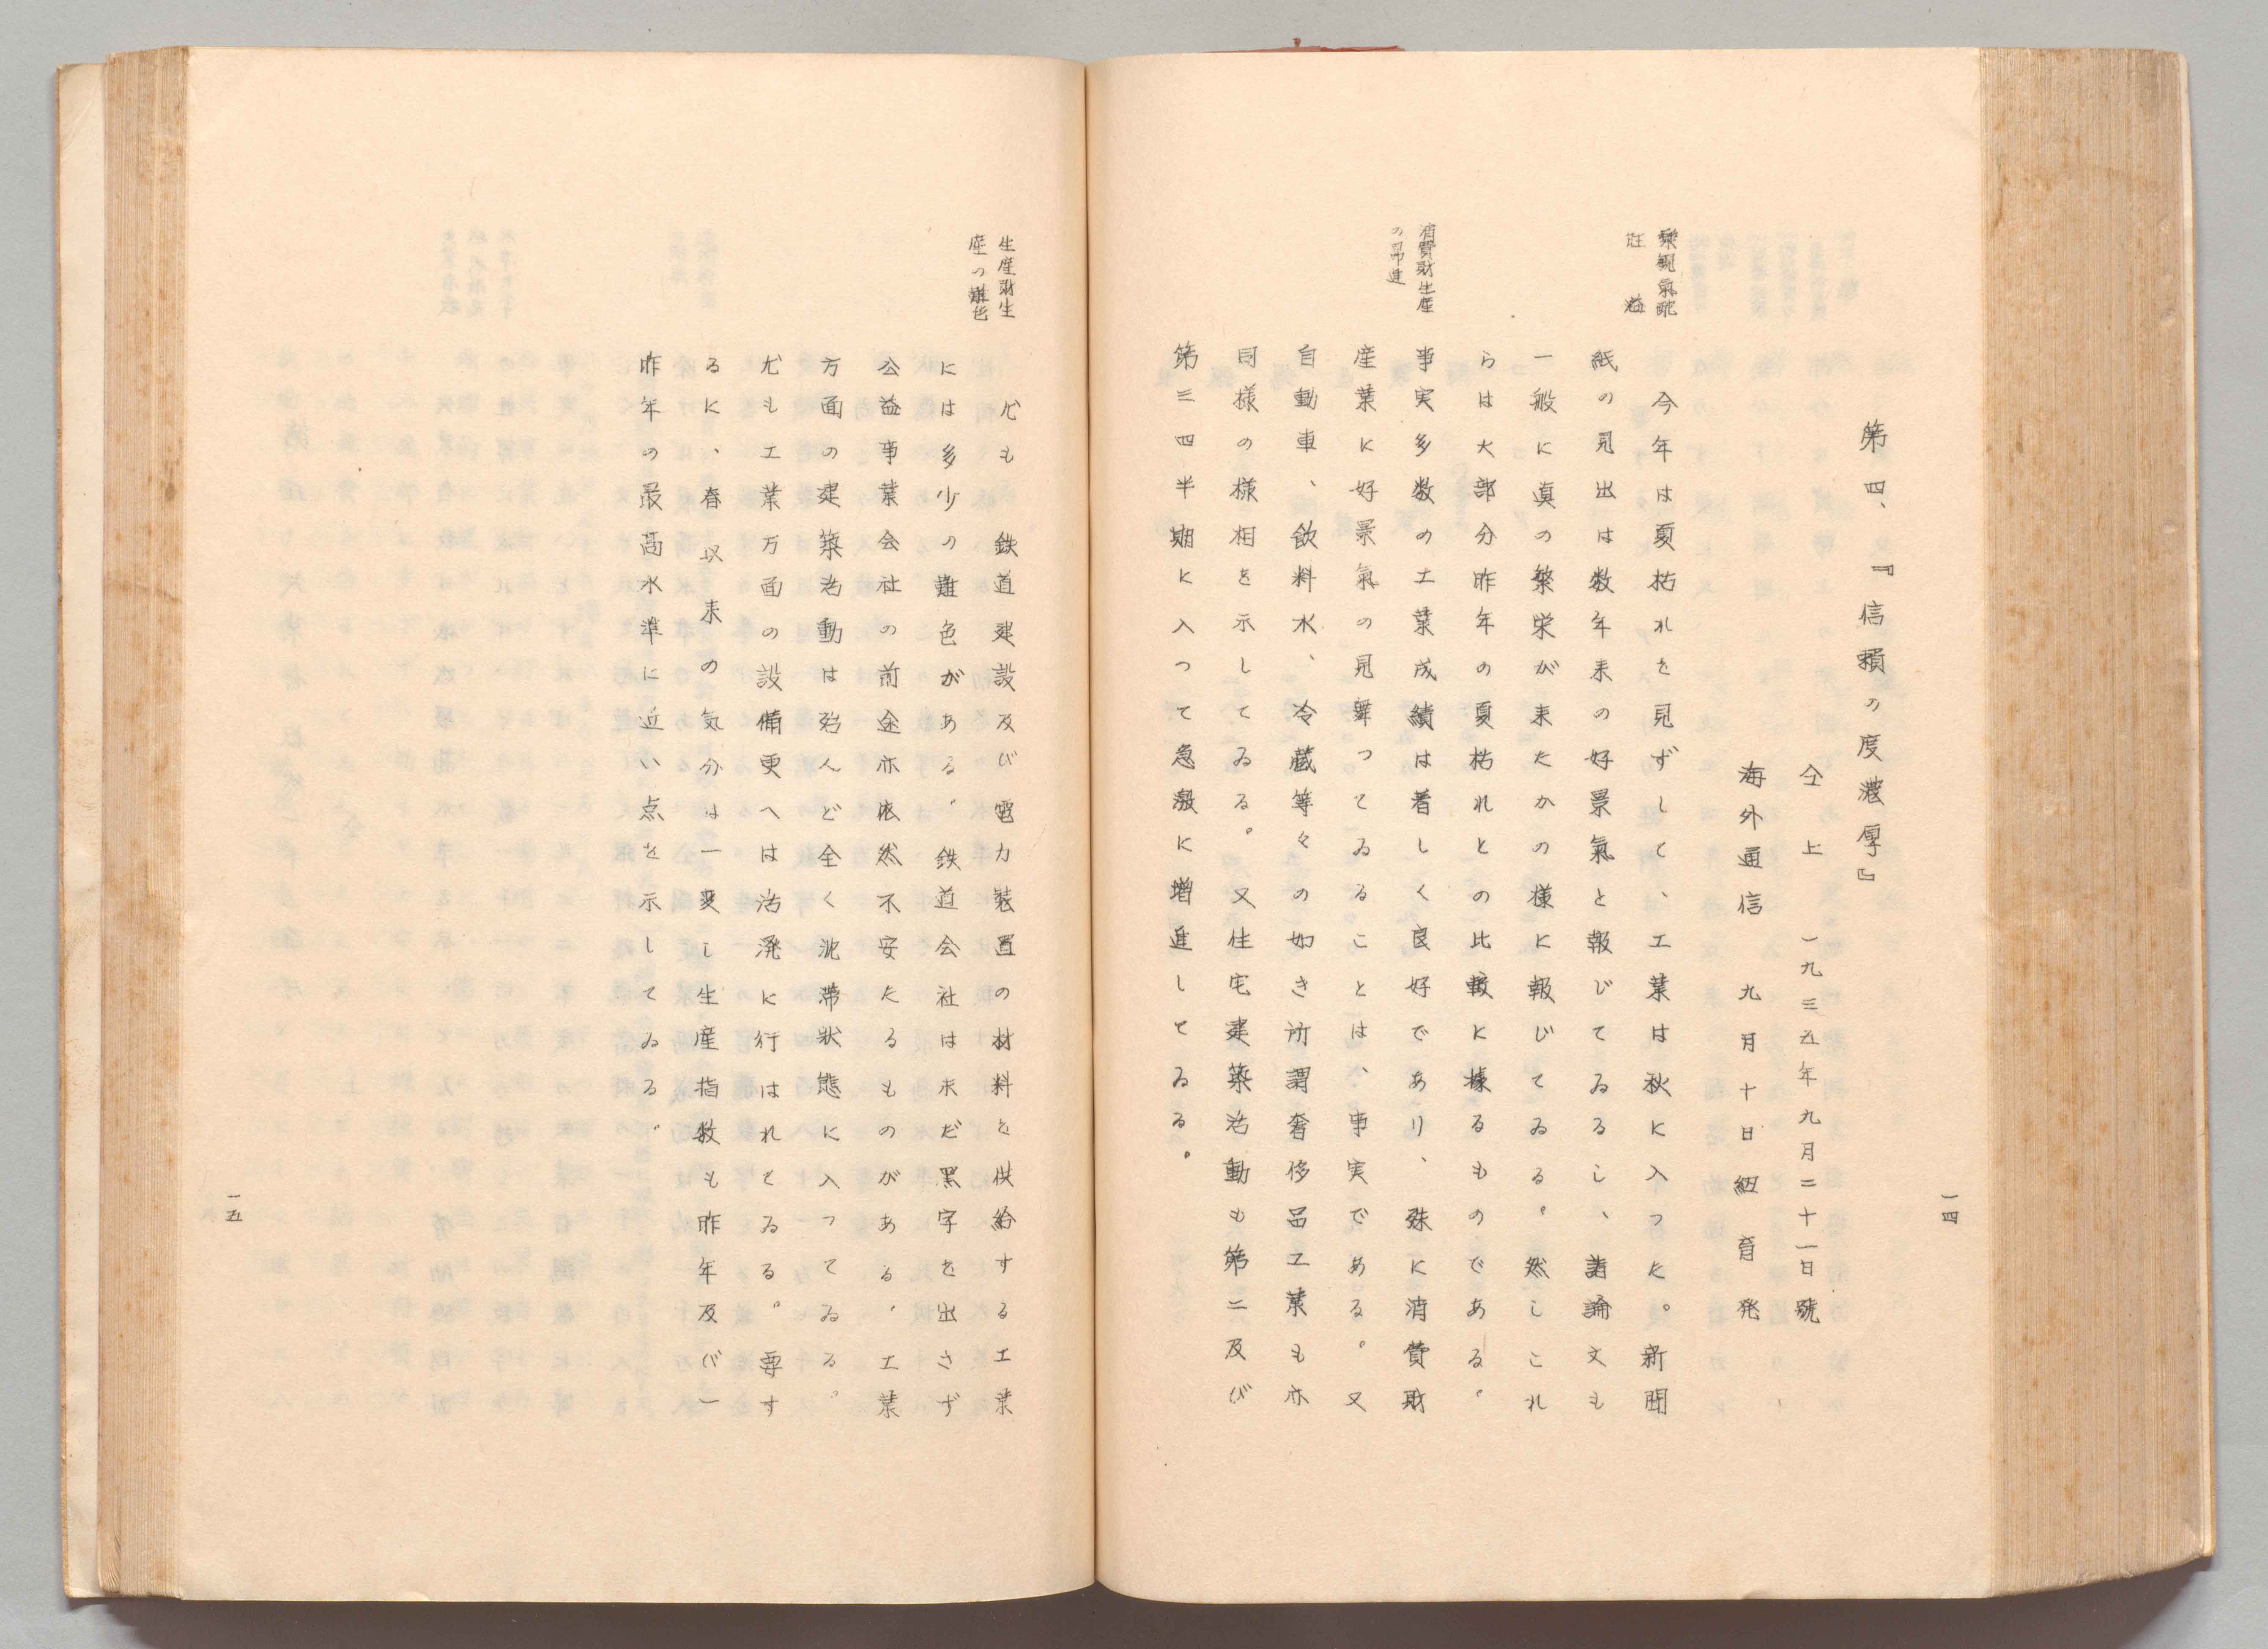 一四
第四、『信頼の度濃厚』
仝上　一九三五年九月二十一日號
海外通信　九月十日紐育発
楽観氣配
旺溢
今年は夏枯れを見ずして、工業は秋に入つた。新聞
紙の見出は数年来の好景氣と報じてゐるし、諸論文も
一般に真の繁栄が来たかの様に報じてゐる。然しこれ
らは大部分昨年の夏枯れとの比較に據るものである。
消費財生産
の昂進
事実多数の工業成績は着しく良好であり、殊に消費財
産業に好景氣の見舞つてゐることは、事実である。又
自動車、飲料水、冷蔵等々の如き所謂奢侈品工業も亦
同様の様相を示してゐる。又住宅建築活動も第二及び
第三四半期に入つて急激に増進してゐる。
生産財生
産の難色
尤も、鉄道建設及び電力装置の材料を供給する工業
には多少の難色がある。鉄道会社は未だ黒字を出さず
公益事業会社の前途亦依然不安たるものがある。工業
方面の建築活動は殆んど全く沈滞状態に入つてゐる。
尤も工業方面の設備更へは活溌に行はれてゐる。要す
るに、春以来の気分は一変し生産指数も昨年及び一
昨年の最高水準に近い点を示してゐる。
一五